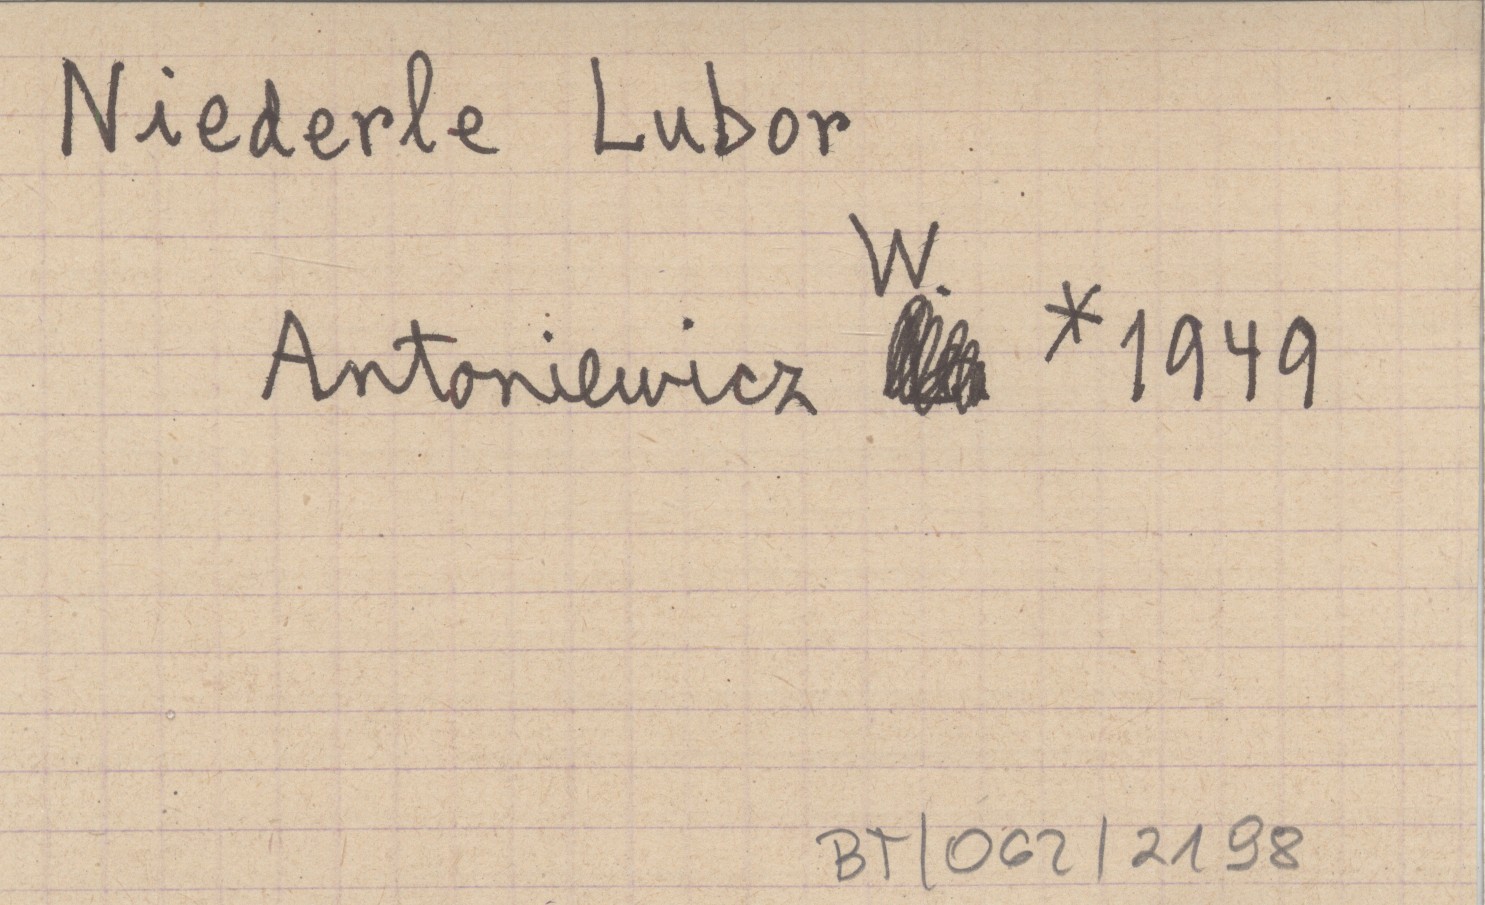 Niederle Lubor
W.
Antoniewicz * 1949
BT/062/2198